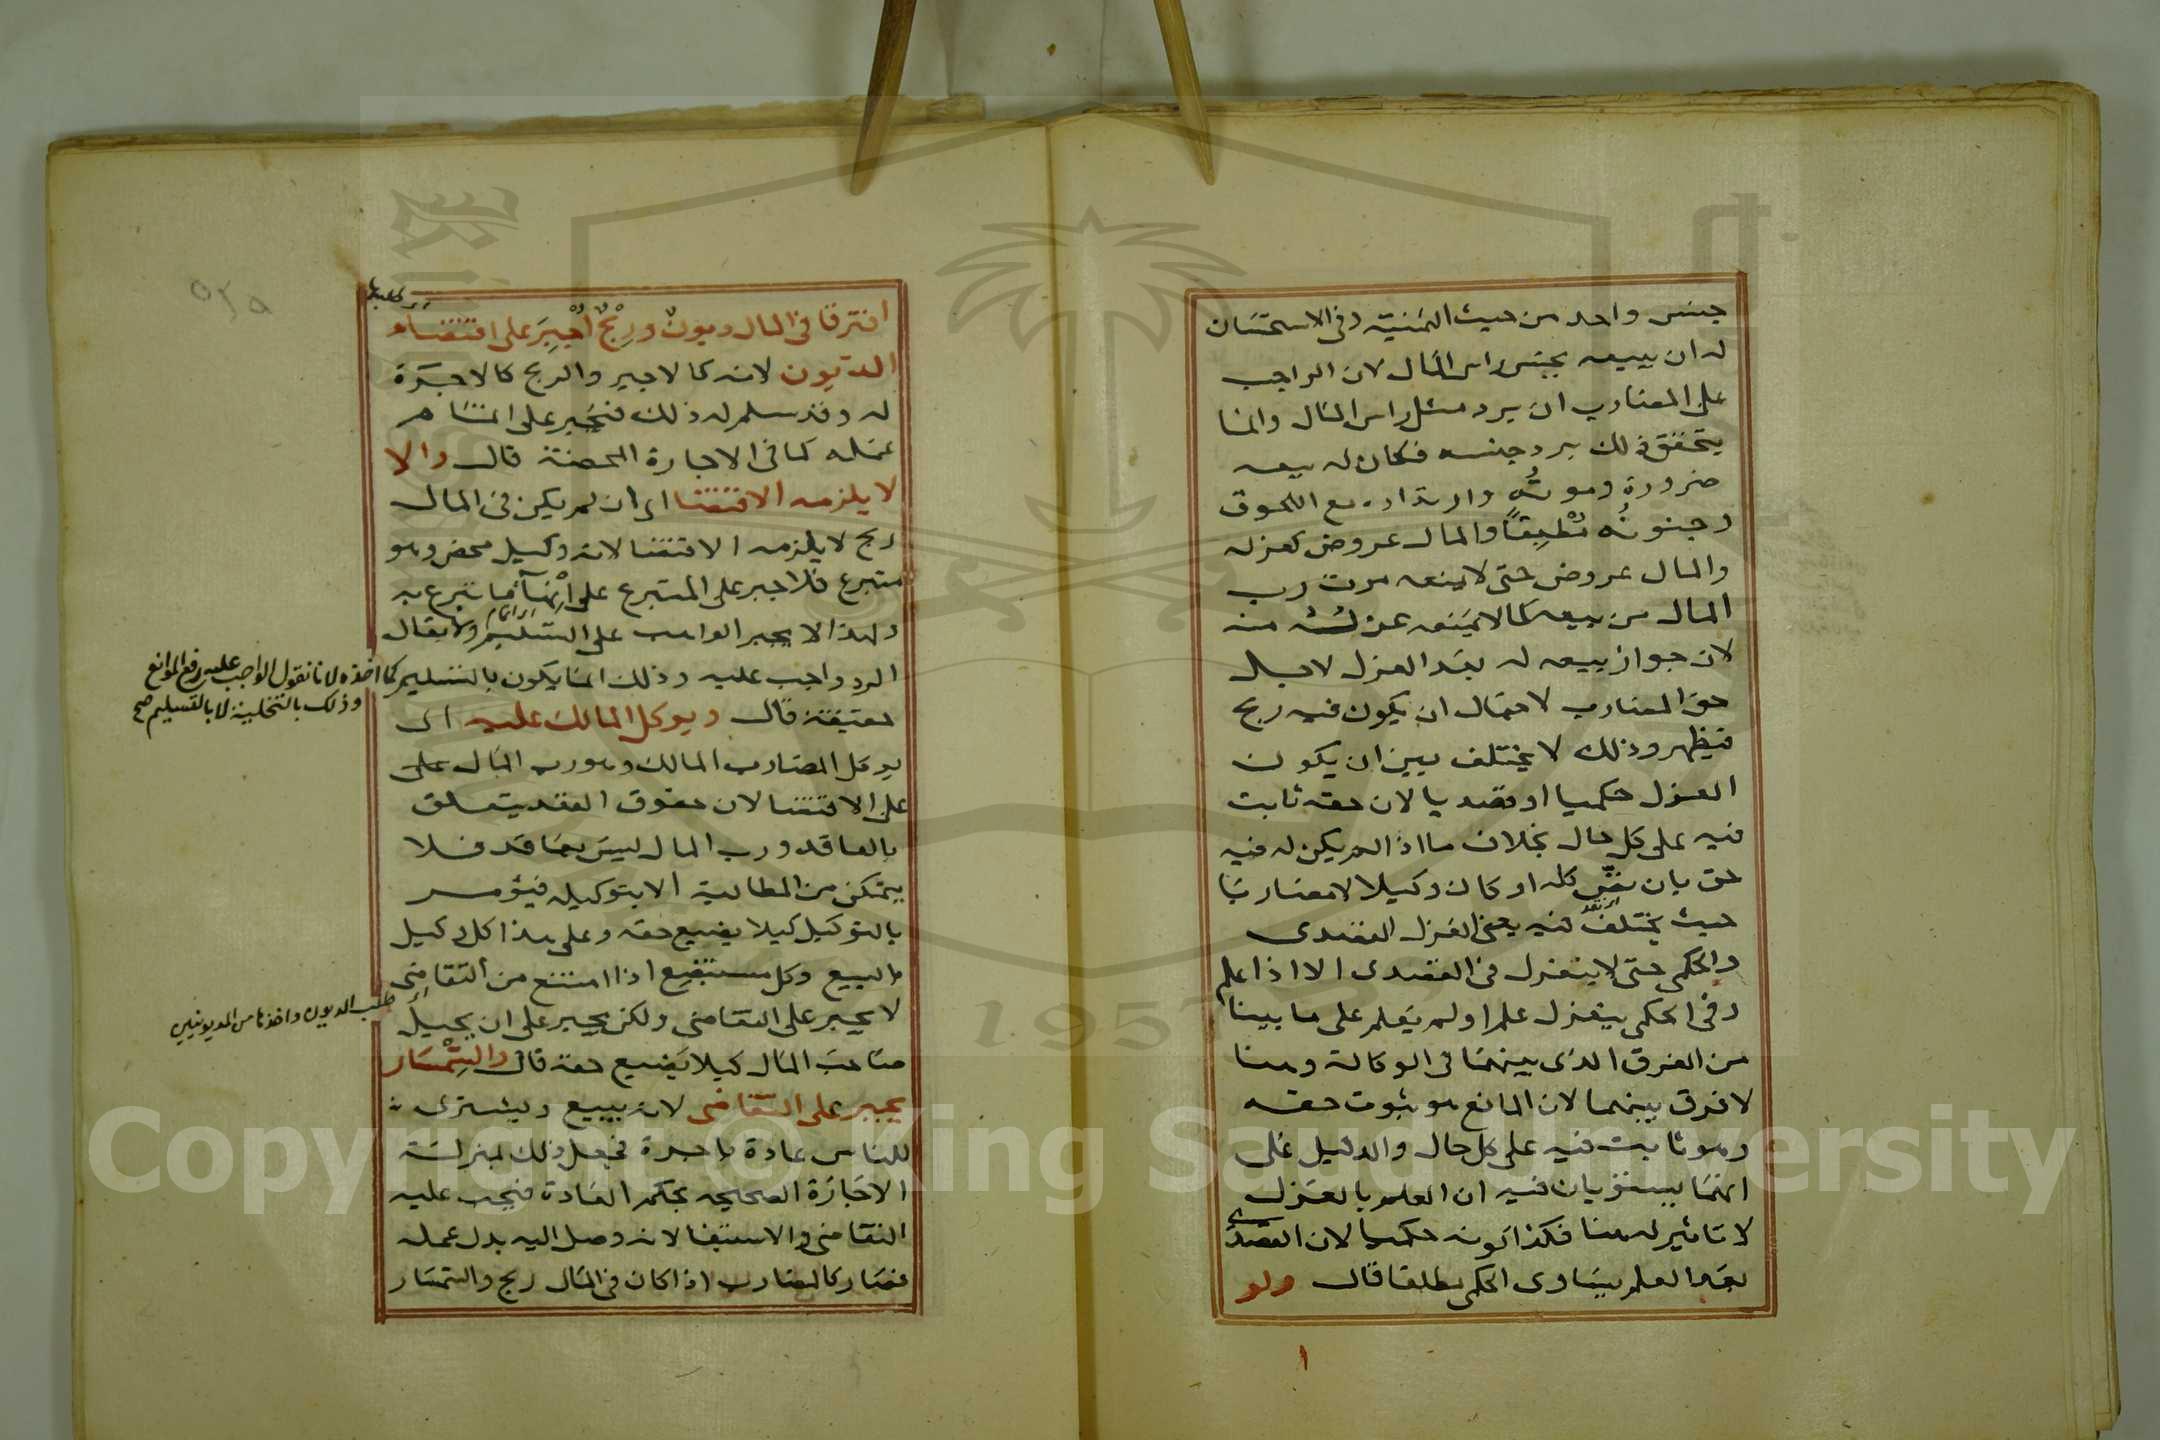 جنس واحد من حيث الثمنية وفى الاستحسان
له ان يبيعه بجنس راس المال لان الواجب
على المضارب ان يرد مثل راس المال وانما
يتحقق ذلك برد جنسه فكان له بيعه
ضرورة وموته وارتداده مع اللحوق
وجنونه تطبيقا والمال عروض كعزله
والمال عروض حتى لا يمنعه موت رب
المال من بيعه كما لا يمنعه عزله منه
لان جواز بيعه له بعد العزل لاجل
حق المضارب لاحتمال ان يكون فيه ربح
فيظهر وذلك لا يختلف بين ان يكون
العزل حكميا او قصديا لان حقه ثابت
فيه على كل حال بخلاف ما اذا لم يكن له فيه
حق بان نض كله او كان وكيلا لا مضاربا
حيث يختلف فيه يعنى العزل القصدى
والحكمى حتى لا ينعزل فى القصدى الا اذا علم
وفى الحكمى ينعزل علم او لم يعلم على ما بينا
من الفرق الذى بينهما فى الوكالة وهنا
لا فرق بينهما لان المانع هو ثبوت حقه
وهو ثابت فيه على كل حال والدليل على
انهما يستويان فيه ان العلم بالعزل
لا تاثير له هنا فكذا كونه حكميا لان القصدى
بعد العلم يساوى الحكمى مطلقا قال ولو
افترقا فى المال ديون وربح اجبر على اقتضاء
الديون لانه كالاجير والربح كالاجرة
له وقد سلم له ذلك فيجبر على اتمام
عمله كما فى الاجارة المحضة قال والا
لا يلزمه الاقتضا اى ان لم يكن فى المال
ربح لا يلزمه الاقتضا لانه وكيل محض وهو
متبرع فلا جبر على المتبرع على انهاء ما تبرع به
ولهذا لا يجبر الواهب على التسليم ولا يقال
الرد واجب عليه وذلك انما يكون بالتسليم كما اخذه لانا نقول الواجب عليه رفع الموانع
وذلك بالتخلية لا بالتسليم صح
حقيقة قال ويوكل المالك عليه اى
يوكل المضارب المالك وهو رب المال على
على الاقتضا لان حقوق العقد يتعلق
بالعاقد ورب المال ليس بعاقد فلا
يتمكن من المطالبة الا بتوكيله فيؤمر
بالتوكيل كيلا يضيع حقه وعلى هذا كل وكيل
بالبيع وكل مستبضع اذا امتنع من التقاضى
طلب الديون واخذها من المديونين
لا يجبر على التقاضى ولكن يجبر على ان يحيل
صاحب المال كيلا يضيع حقه قال والسمسار
يجبر على التقاضى لانه يبيع ويشترى
للناس عادة باجرة فجعل ذلك بمنزلة
الاجارة الصحيحه بحكم العادة فيجب عليه
التقاضى والاستيفا لانه وصل اليه بدل عمله
فصار كالمضارب اذا كان فى المال ربح والسمسار